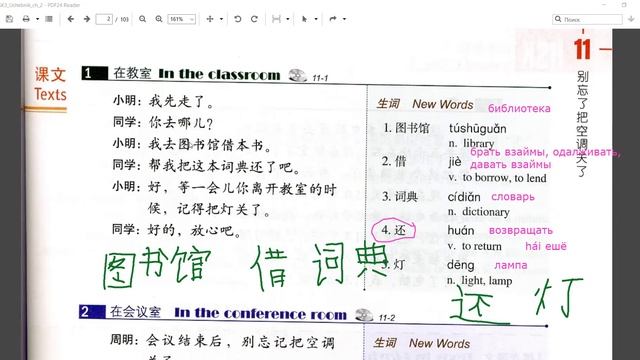 SK3_Uchebnik_ch_2 - PDF24 Reader
2 / 103
161%
Поиск
课文
Texts
1 在教室 In the classroom 11-1
小明：我先走了。
同学：你去哪儿？
小明：我去图书馆借本书。
同学：帮我把这本词典还了吧。
小明：好，等一会儿你离开教室的时
候，记得把灯关了。
同学：好的，放心吧。
生词 New Words
библиотека
1. 图书馆 túshūguǎn
n. library
брать взаймы, одалживать,
2. 借 jiè давать взаймы
v. to borrow, to lend
3. 词典 cídiǎn словарь
n. dictionary
4. 还 huán возвращать
v. to return hái ещё
5. 灯 dēng лампа
n. light, lamp
图书馆 借 词典
还 灯
11
别忘了把空调关了
2 在会议室 In the conference room 11-2
周明：会议结束后，别忘记把空调
关了。
生词 New Words